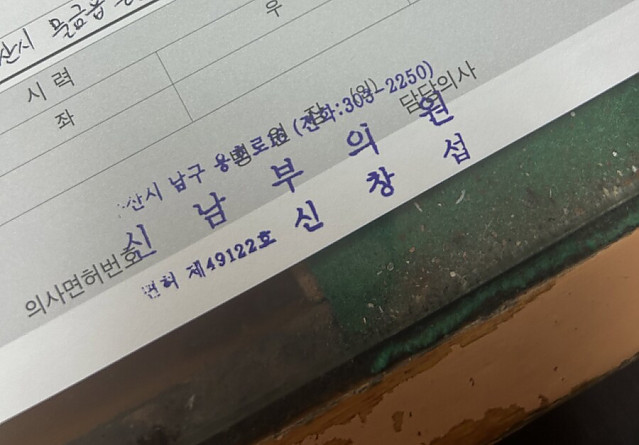 산시 물금읍
시력
우
좌
병원장 (인)
담당의사
산시 남구 용호로 (전화:303-2250)
신남부의원
의사면허번호
면허 제49122호 신창섭